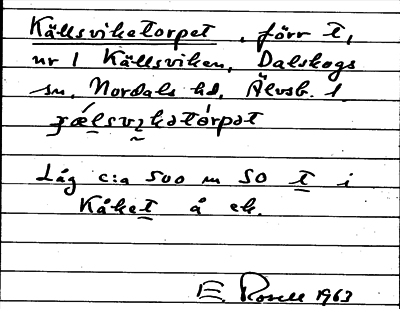 Källsviketorpet, förr t,
nr 1 Källsviken, Dalskogs
sn, Nordals hd, Älvsb. l.
Låg c:a 500 m SO t i
Kåket å ek.
E. Rosell 1963